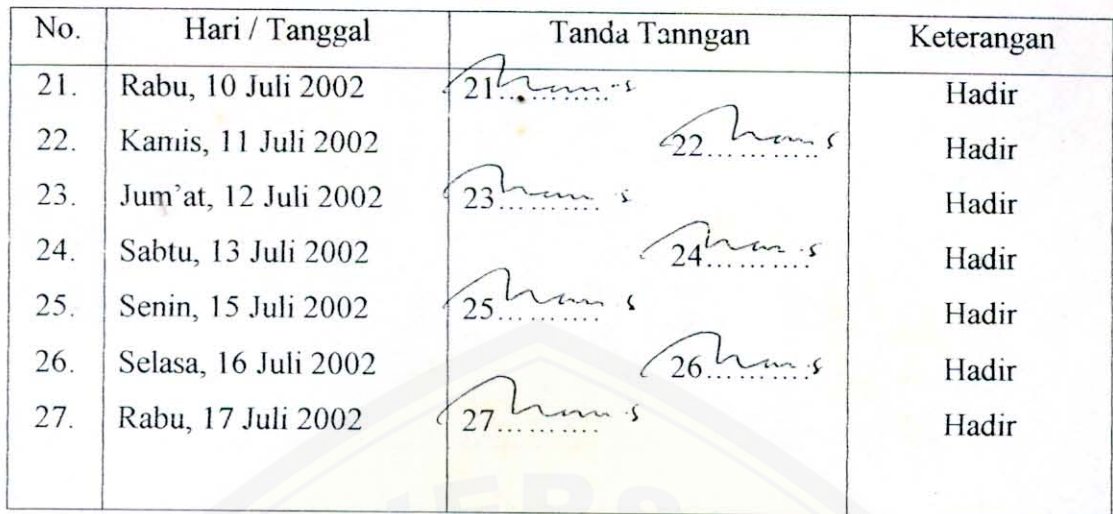 No. Hari / Tanggal Tanda Tanngan Keterangan
21. Rabu, 10 Juli 2002 21.......... Hadir
22. Kamis, 11 Juli 2002 22.......... Hadir
23. Jum'at, 12 Juli 2002 23.......... Hadir
24. Sabtu, 13 Juli 2002 24.......... Hadir
25. Senin, 15 Juli 2002 25.......... Hadir
26. Selasa, 16 Juli 2002 26.......... Hadir
27. Rabu, 17 Juli 2002 27.......... Hadir